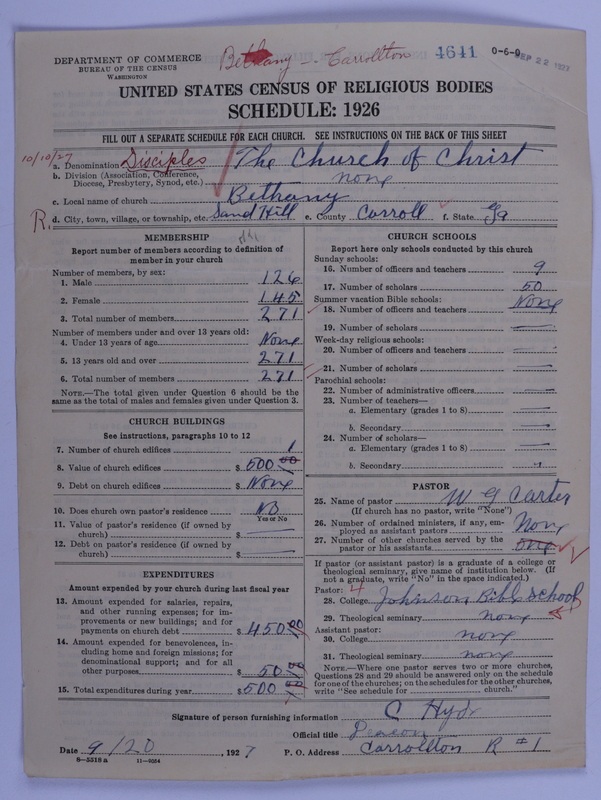 DEPARTMENT OF COMMERCE
BUREAU OF THE CENSUS
WASHINGTON
Bethany - Carrollton
4641
0-6-9
SEP 22 1927
UNITED STATES CENSUS OF RELIGIOUS BODIES
SCHEDULE: 1926
FILL OUT A SEPARATE SCHEDULE FOR EACH CHURCH. SEE INSTRUCTIONS ON THE BACK OF THIS SHEET
10/10/27
a. Denomination Disciples The Church of Christ
b. Division (Association, Conference, Diocese, Presbytery, Synod, etc.) none
c. Local name of church Bethany
R. d. City, town, village, or township, etc. Sand Hill e. County Carroll f. State Ga
MEMBERSHIP
Report number of members according to definition of
member in your church
Number of members, by sex:
1. Male 126
2. Female 145
3. Total number of members 271
Number of members under and over 13 years old:
4. Under 13 years of age None
5. 13 years old and over 271
6. Total number of members 271
NOTE.—The total given under Question 6 should be
same as the total of males and females given under Question 3.
CHURCH BUILDINGS
See instructions, paragraphs 10 to 12
7. Number of church edifices 1
8. Value of church edifices $ 500 00
9. Debt on church edifices $ None
10. Does church own pastor's residence No
Yes or No
11. Value of pastor's residence (if owned by
church) $
12. Debt on pastor's residence (if owned by
church) $
EXPENDITURES
Amount expended by your church during last fiscal year
13. Amount expended for salaries, repairs,
and other running expenses; for im-
provements or new buildings; and for
payments on church debt $ 450 00
14. Amount expended for benevolences, in-
cluding home and foreign missions; for
denominational support; and for all
other purposes $ 50 00
15. Total expenditures during year $ 500 00
CHURCH SCHOOLS
Report here only schools conducted by this church
Sunday schools:
16. Number of officers and teachers 9
17. Number of scholars 50
Summer vacation Bible schools:
18. Number of officers and teachers None
19. Number of scholars
Week-day religious schools:
20. Number of officers and teachers
21. Number of scholars
Parochial schools:
22. Number of administrative officers
23. Number of teachers—
a. Elementary (grades 1 to 8)
b. Secondary
24. Number of scholars—
a. Elementary (grades 1 to 8)
b. Secondary
PASTOR
25. Name of pastor W G Carter
(If church has no pastor, write "None")
26. Number of ordained ministers, if any, em-
ployed as assistant pastors None
27. Number of other churches served by the
pastor or his assistants one
If pastor (or assistant pastor) is a graduate of a college or
theological seminary, give name of institution below. (If
not a graduate, write "No" in the space indicated.)
Pastor: 4
28. College Johnson Bible School
29. Theological seminary none
Assistant pastor:
30. College none
31. Theological seminary none
NOTE.—Where one pastor serves two or more churches,
Questions 28 and 29 should be answered only on the schedule
for one of the churches; on the schedules for the other churches,
write "See schedule for church."
Signature of person furnishing information C Hyde
Official title Deacon
Date 9/20, 1927 P. O. Address Carrollton R #1
8—5518 a 11—5054